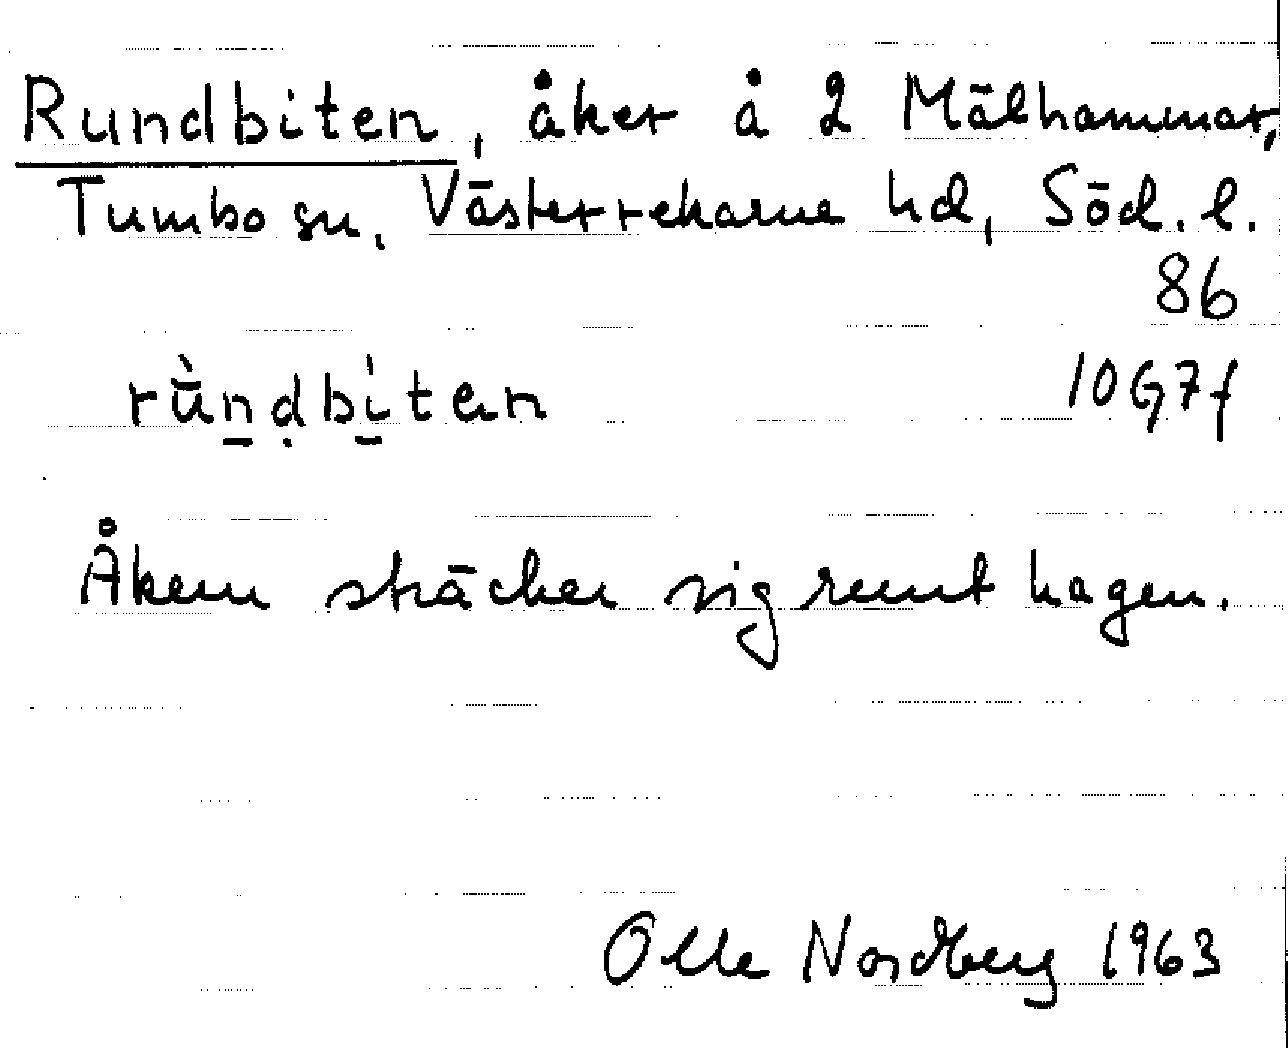 Rundbiten, åker å 2 Mälhammar,
Tumbo sn, Västerrekarne hd, Söd. l.
86
rùn̠ḍbi̠ten
10G7f
Åkern sträcker sig runt hagen.
Olle Nordberg 1963